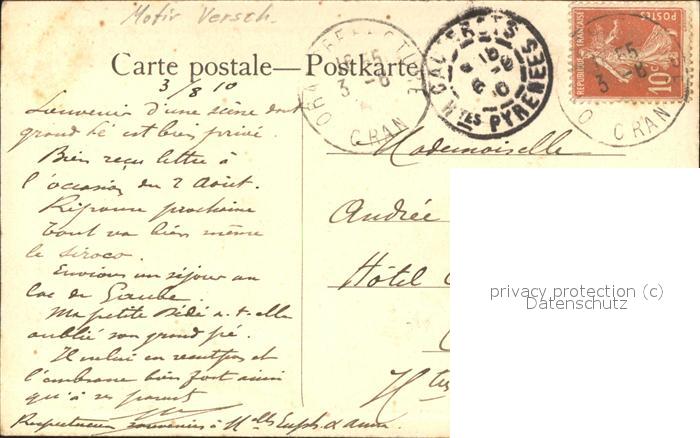 Motiv Versch.
Carte postale—Postkarte
3/8 10
Souvenir d'une scène dont
grand Pé est bien privé.
Bien reçu lettre à
l'occasion du 2 Août.
Réponse prochaine
Tout va bien même
le siroco.
Envions un séjour au
Lac de Gaube.
Ma petite Dédé a-t-elle
oublié son grand pé.
Il et
l'embrasse bien fort ainsi
qu'à ses parents
Respectueux souvenirs à
Mademoiselle
Andrée
Hôtel
Htes
ORAN PREFECTURE
16-55
3-8
ORAN
CAUTERETS
Htes PYRENEES
REPUBLIQUE FRANÇAISE
POSTES
10c
ORAN
privacy protection (c)
Datenschutz